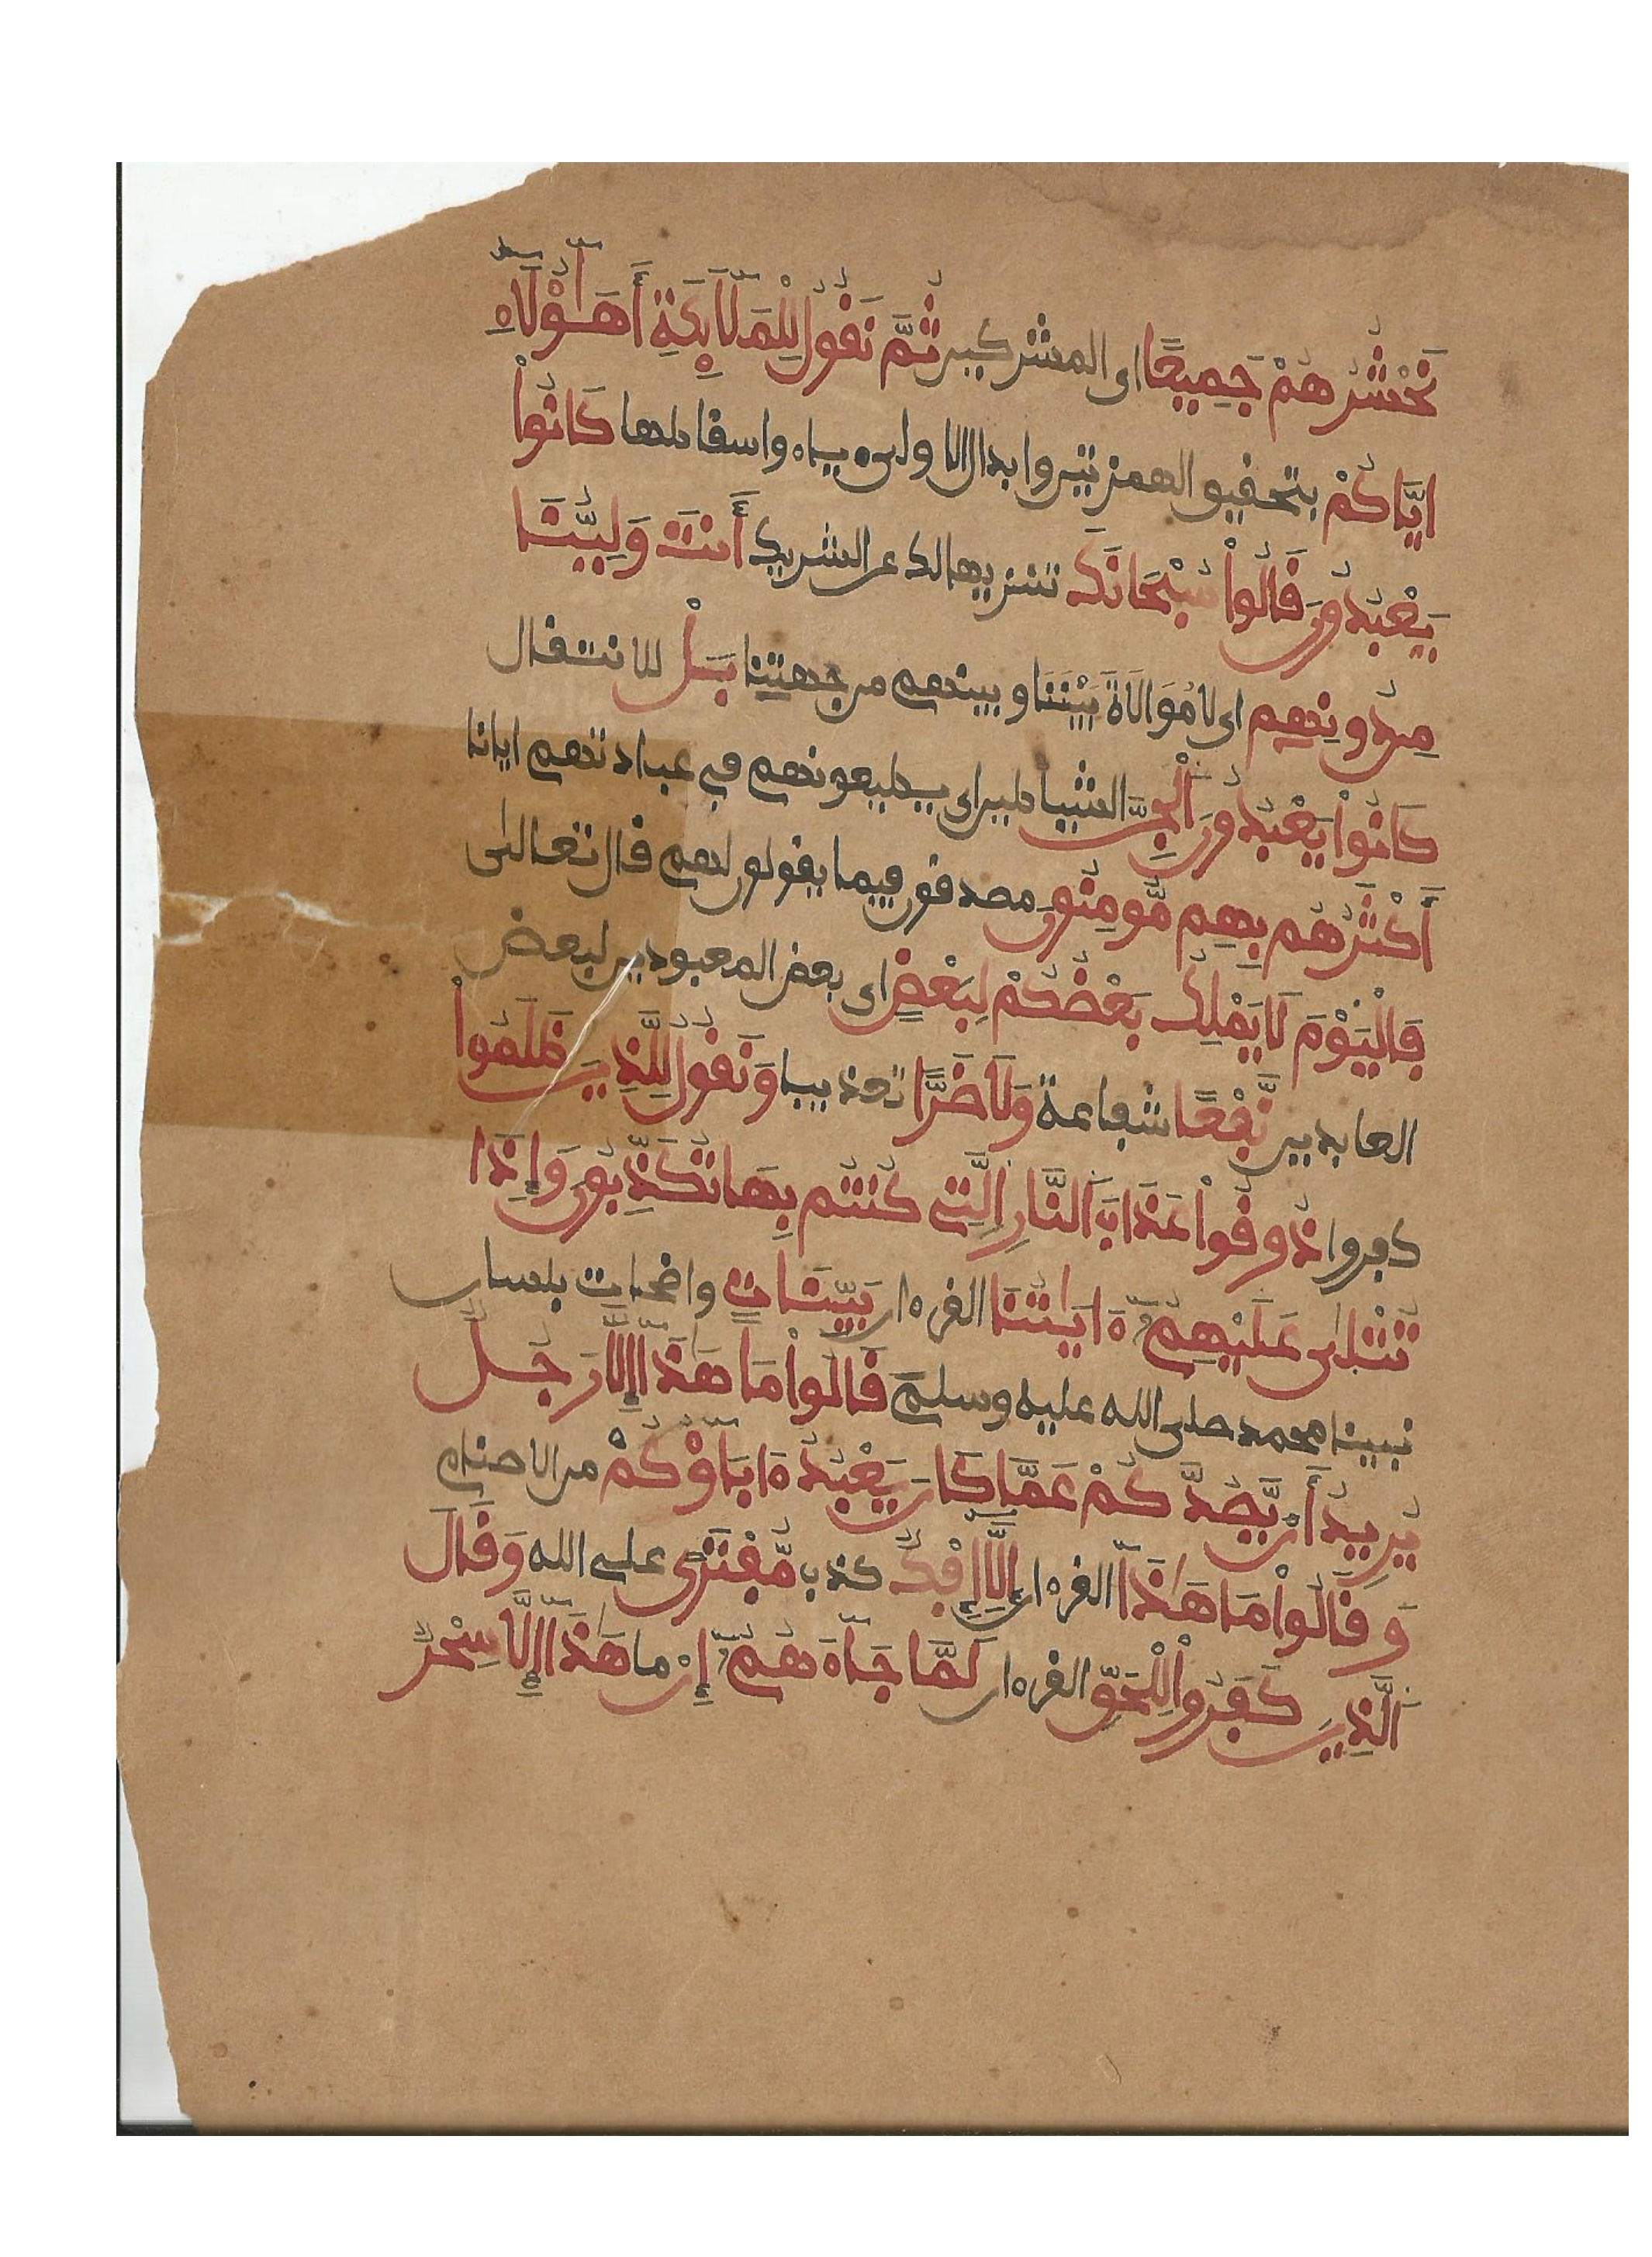 نَحْشُرُهُمْ جَمِيعًا اى المشركين ثُمَّ نَقُولُ لِلْمَلَآئِكَةِ أَهَؤُلَآءِ
إِيَّاكُمْ بتحقيق الهمزتين وابدال الاولى ياء واسقاطها كَانُواْ
يَعْبُدُونَ قَالُواْ سُبْحَانَكَ تنزيها لك عن الشريك أَنتَ وَلِيُّنَا
مِن دُونِهِم اى لا مُوَالَاةَ بَيْنَنَا وبينهم من جهتنا بَلْ للانتقال
كَانُواْ يَعْبُدُونَ اَلْجِنَّ الشياطين اى يطيعونهم في عبادتهم ايانا
أَكْثَرُهُم بِهِم مُّومِنُونَ مصدقون فيما يقولون لهم قال تعالى
فَالْيَوْمَ لَا يَمْلِكُ بَعْضُكُمْ لِبَعْضٍ اى بعض المعبودين لبعض
العابدين نَّفْعًا شفاعة وَلَا ضَرًّا تعذيبا وَنَقُولُ لِلَّذِينَ ظَلَمُواْ
كفروا ذُوقُواْ عَذَابَ اَلنَّارِ اِلَّتِي كُنتُم بِهَا تُكَذِّبُونَ وَإِذَا
تُتْلَى عَلَيْهِمُۥٓ ءَايَٰتُنَا القرءان بَيِّنَاتٍ واضحات بلسان
نبينا محمد صلى الله عليه وسلم قَالُواْ مَا هَذَا إِلَّا رَجُلٌ
يُرِيدُ أَنْ يَّصُدَّكُمْ عَمَّا كَانَ يَعْبُدُ ءَابَآؤُكُمْ من الاصنام
وَقَالُواْ مَا هَٰذَآ القرءان إِلَّآ إِفْكٌ كذب مُّفْتَرًى على الله وَقَالَ
اَلَّذِينَ كَفَرُواْ لِلْحَقِّ القرءان لَمَّا جَآءَهُمُۥٓ إِنْ ما هَٰذَآ إِلَّا سِحْرٌ